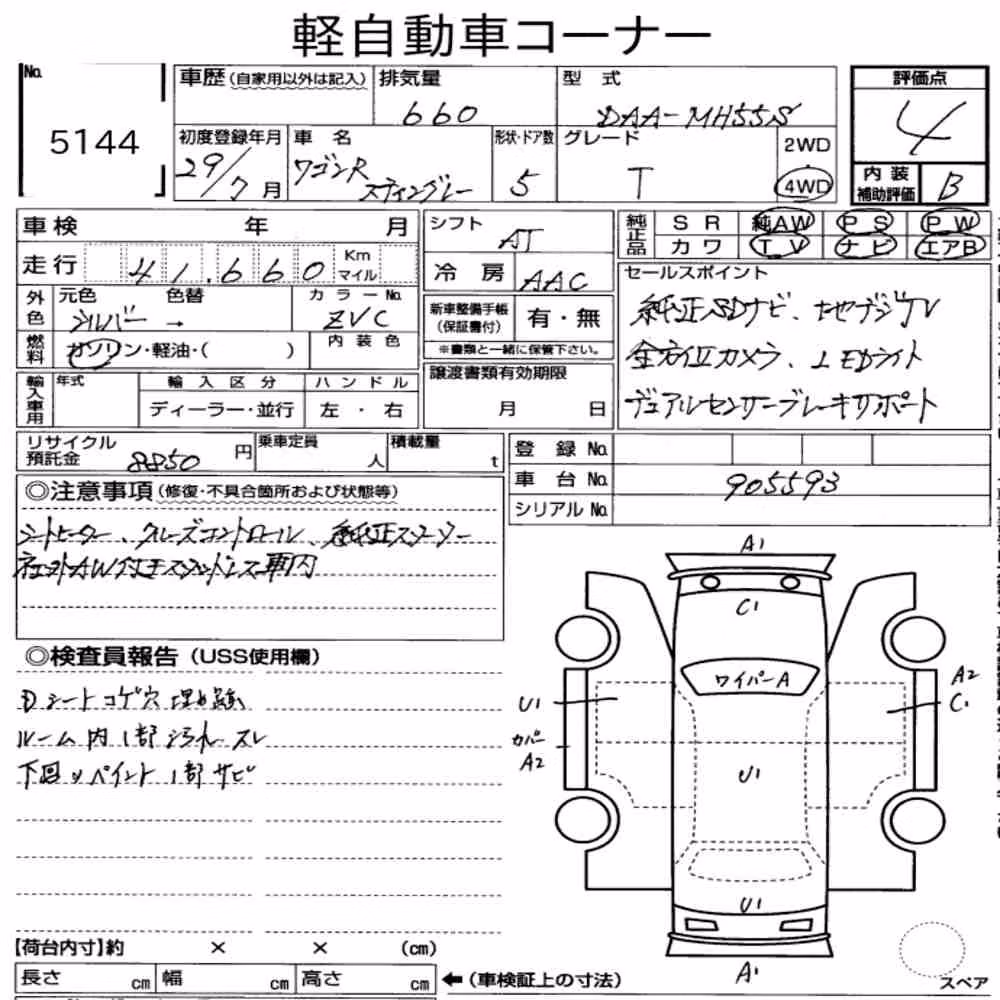 軽自動車コーナー
No. 5144
車歴 (自家用以外は記入)
排気量 660
型式 DAA-MH55S
評価点 4
初度登録年月 29/7月
車名 ワゴンR スティングレー
形状・ドア数 5
グレード T
2WD
4WD
内装補助評価 B
車検 年 月
走行 41,660 Km マイル
外色 元色 シルバー → 色替
カラーNo. ZVC
燃料 ガソリン・軽油・( )
内装色
輸入車用 年式 輸入区分 ディーラー・並行 ハンドル 左・右
シフト AT
冷房 AAC
新車整備手帳(保証書付) 有・無
※書類と一緒に保管下さい。
譲渡書類有効期限 月 日
純正品 SR 純AW PS PW
カワ TV ナビ エアB
セールスポイント
純正SDナビ、地デジTV
全方位カメラ、LEDライト
デュアルセンサーブレーキサポート
リサイクル預託金 8850円
乗車定員 人
積載量 t
登録No.
車台No. 905593
シリアルNo.
◎注意事項 (修復・不具合箇所および状態等)
シートヒーター、クルーズコントロール、純正
AW付 スタッドレス車内
◎検査員報告 (USS使用欄)
Dシートコゲ穴埋め跡
ルーム内1部汚れ、スレ
下回りペイント1部サビ
A1
C1
ワイパーA
U1
カバー
A2
A2
C1
U1
U1
A1
【荷台内寸】約 × × (cm)
長さ cm 幅 cm 高さ cm ←(車検証上の寸法)
スペア